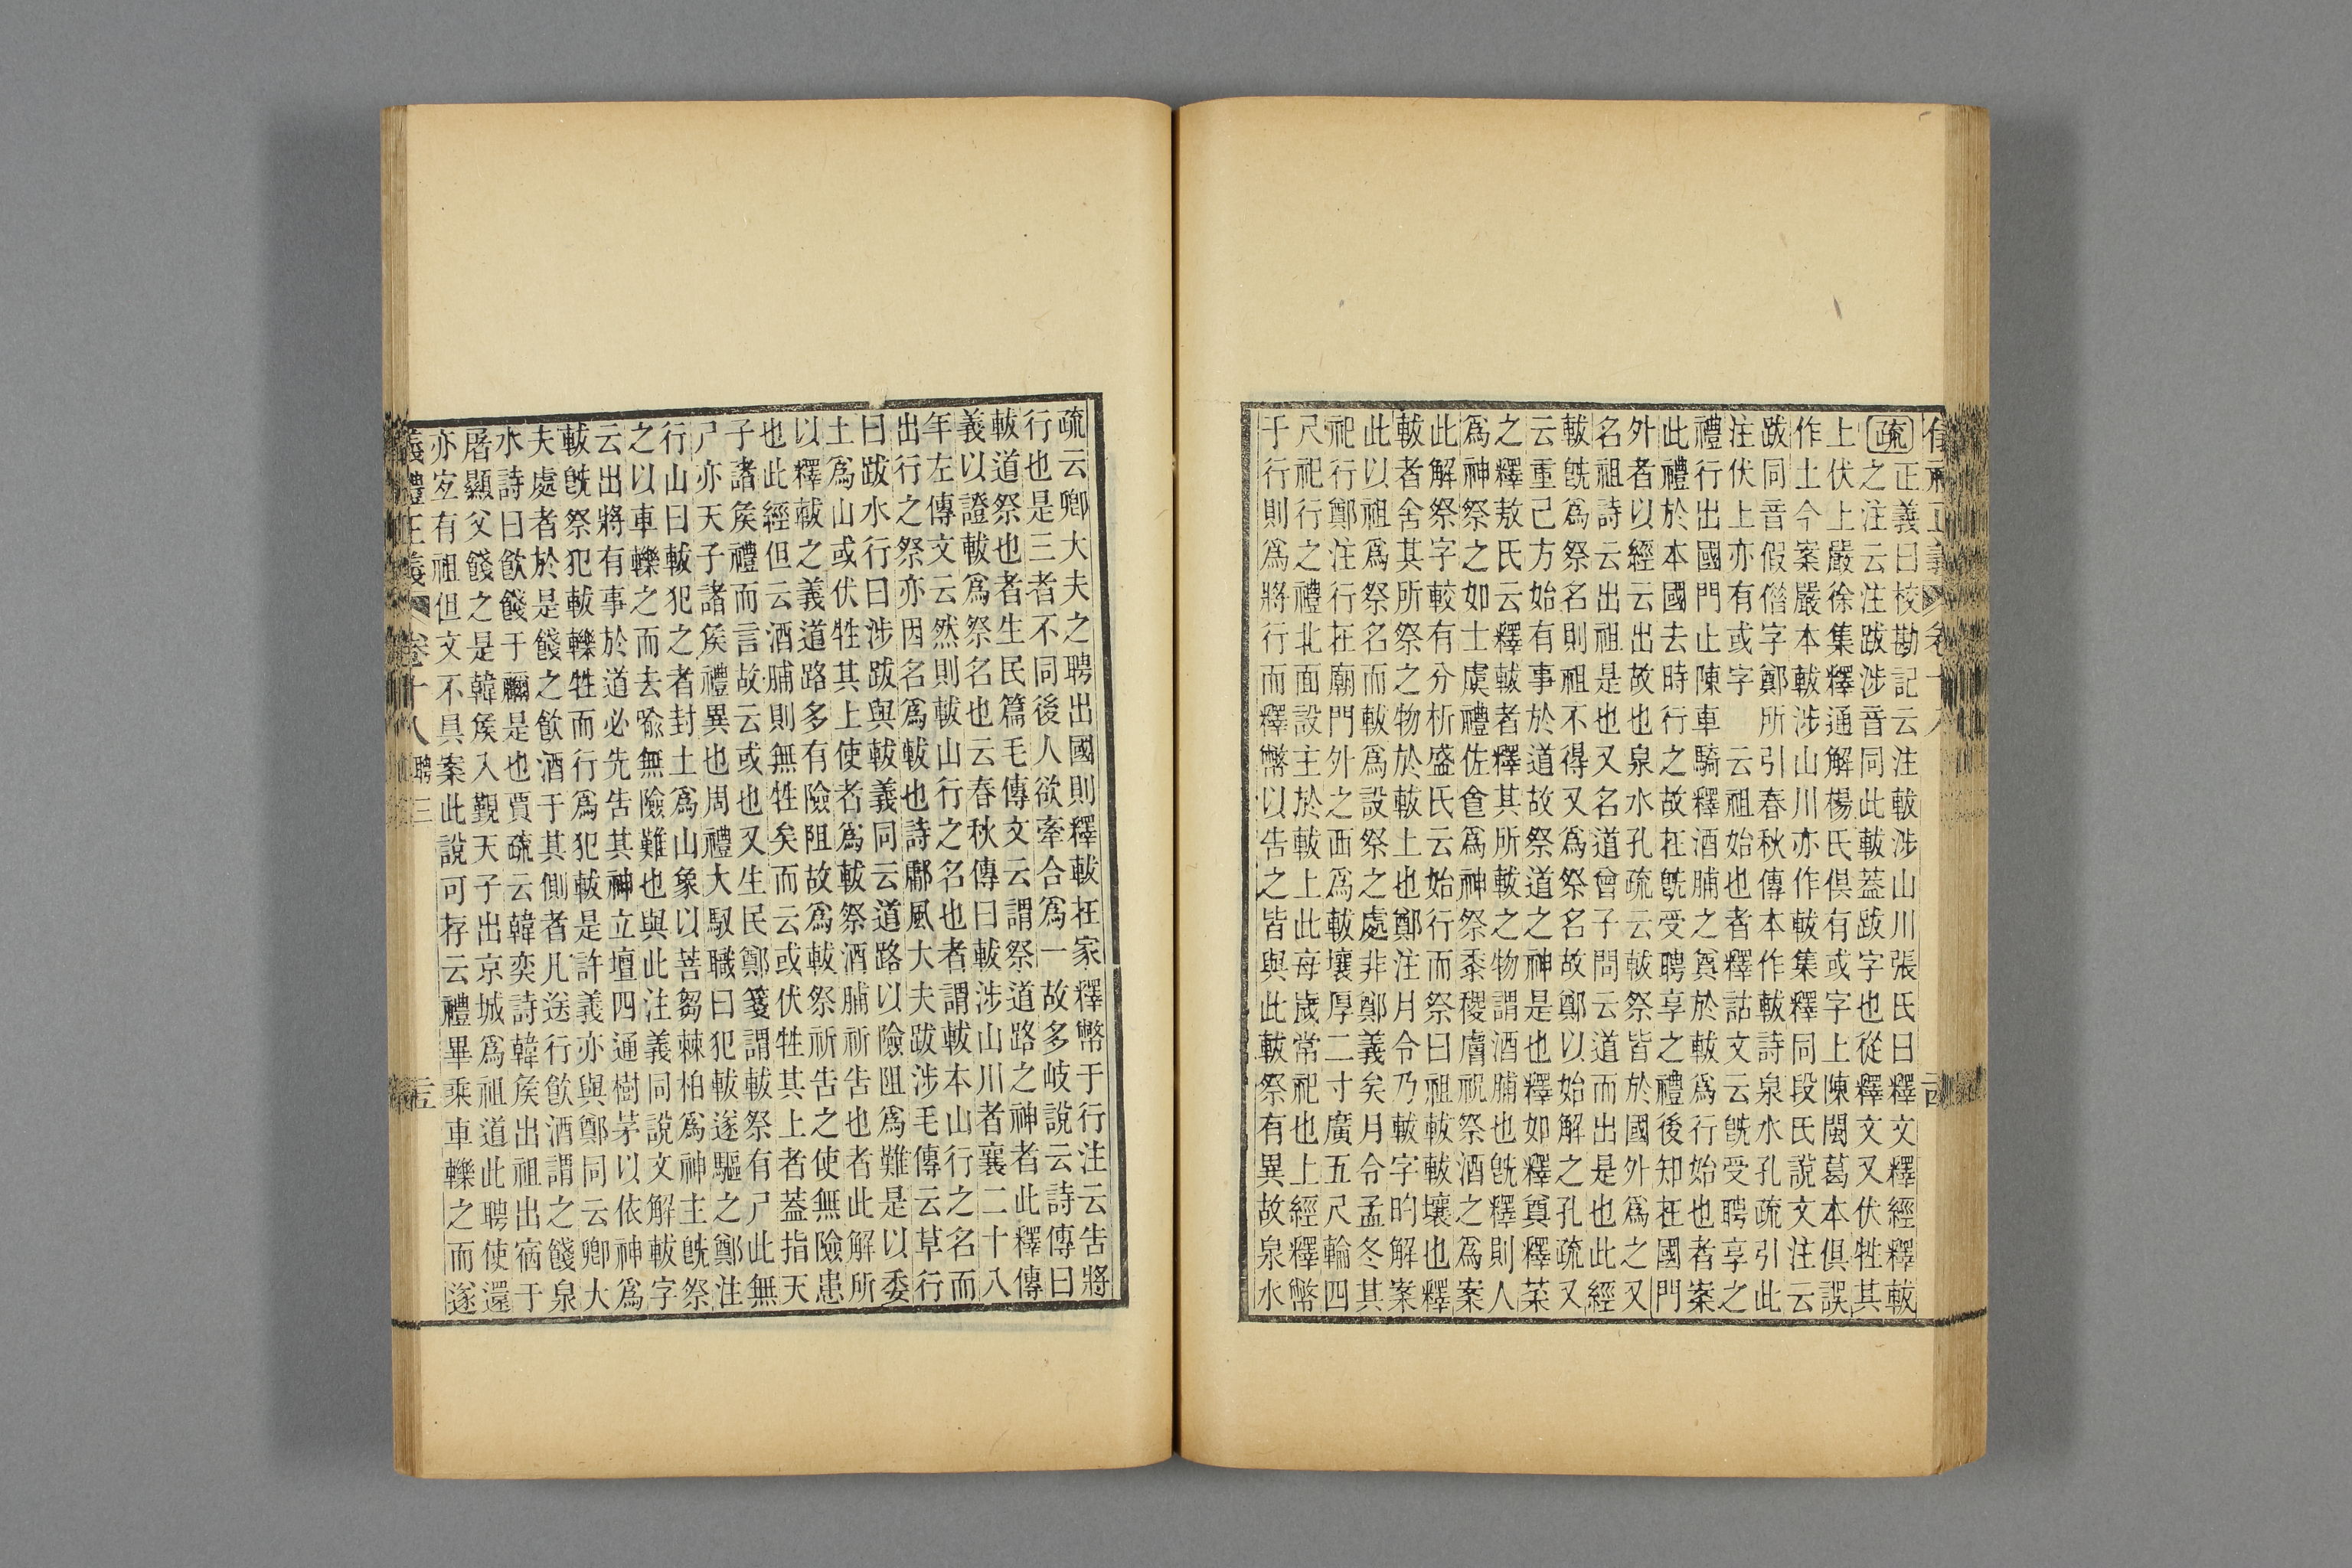 疏正義曰校勘記云注軷涉山川張氏曰釋文釋經釋軷
之注云注跋涉音同此軷蓋跋字也從釋文又伏牲其
上伏上嚴徐集釋通解楊氏俱有或字上陳閩葛本俱誤
作土今案嚴本軷涉山川亦作軷集釋同段氏說文注云
跋同音假借字鄭所引春秋傳本作軷詩泉水孔疏引此
注伏上亦有或字 云祖始也者釋詁文云旣受聘享之
禮行出國門止陳車騎釋酒脯之奠於軷爲行始也者案
此禮於本國去時行之故在旣受聘享之禮後知在國門
外者以經云出故也泉水孔疏云軷祭皆於國外爲之又
名祖詩云出祖是也又名道曾子問云道而出是也此經
軷旣爲祭名則祖不得又爲祭名故鄭以始解之孔疏又
云重己方始有事於道故祭道之神是也釋如釋奠釋菜
之釋敖氏云釋軷者釋其所軷之物謂酒脯也旣釋則人
爲神祭之如士虞禮佐食爲神祭黍稷膚祝祭酒之爲案
此解祭字較有分析盛氏云始行而祭曰祖軷軷壤也釋
軷者舍其所祭之物於軷上也鄭注月令乃軷字昀解案
此以祖爲祭名而軷爲設祭之處非鄭義矣月令孟冬其
祀行鄭注行在廟門外之西爲軷壤厚二寸廣五尺輪四
尺祀行之禮北面設主於軷上此每歲常祀也上經釋幣
于行則爲將行而釋幣以告之皆與此軷祭有異故泉水
疏云卿大夫之聘出國則釋軷在家釋幣于行注云告將
行也是三者不同後人欲牽合爲一故多岐說云詩傳曰
軷道祭也者生民篇毛傳文云謂祭道路之神者此釋傳
義以證軷爲祭名也云春秋傳曰軷涉山川者襄二十八
年左傳文云然則軷山行之名也者謂軷本山行之名而
出行之祭亦因名爲軷也詩鄘風大夫跋涉毛傳云草行
曰跋水行曰涉跋與軷義同云道路以險阻爲難是以委
土爲山或伏牲其上使者爲軷祭酒脯祈告也者此解所
以釋軷之義道路多有險阻故爲軷祭祈告之使無險患
也此經但云酒脯則無牲矣而云或伏牲其上者蓋指天
子諸侯禮而言故云或也又生民鄭箋謂軷祭有尸此無
尸亦天子諸侯禮異也周禮大馭職曰犯軷遂驅之鄭注
行山曰軷犯之者封土爲山象以菩芻棘柏爲神主旣祭
之以車轢之而去喩無險難也與此注義同說文解軷字
云出將有事於道必先告其神立壇四通樹茅以依神爲
軷旣祭犯軷轢牲而行爲犯軷是許義亦與鄭同云卿大
夫處者於是餞之飮酒于其側者凡送行飮酒謂之餞泉
水詩曰飮餞于禰是也賈疏云韓奕詩韓侯出祖出宿于
屠顯父餞之是韓侯入覲天子出京城爲祖道此聘使還
亦宐有祖但文不具案此說可存云禮畢乘車轢之而遂
義禮正義 卷十八 聘三